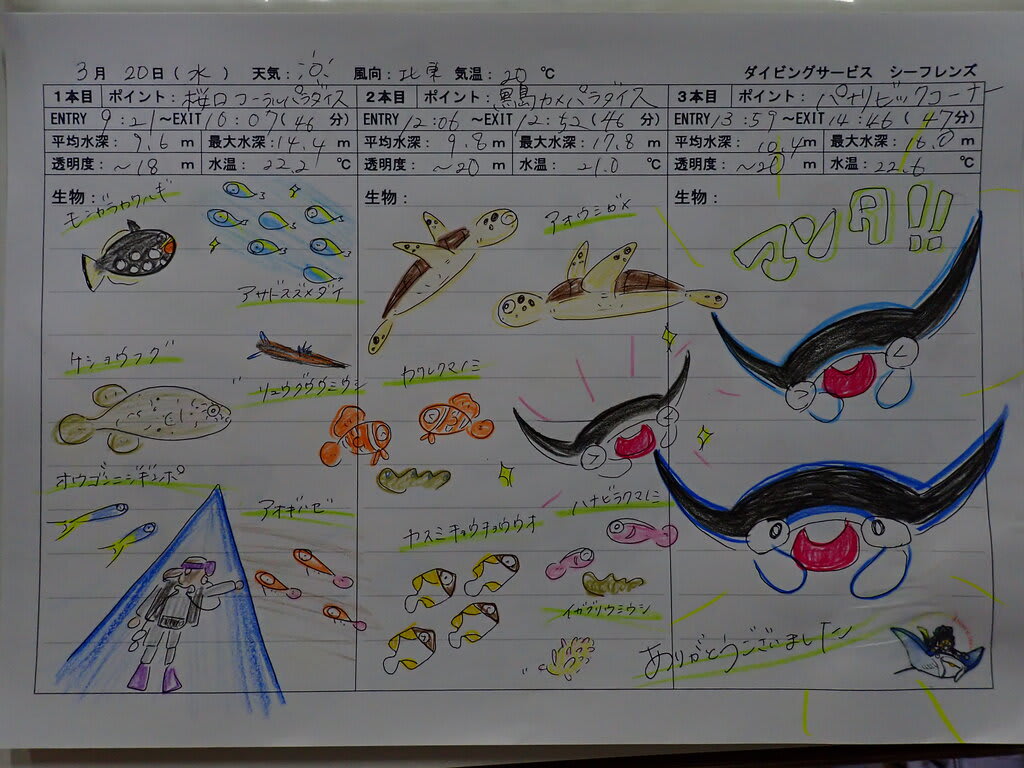 3月 20日(水) 天気: 風向:北東 気温:20 ℃ ダイビングサービス シーフレンズ
1本目 ポイント:桜口コーラルパラダイス
ENTRY 9:21~EXIT 10:07(46 分)
平均水深: 9.6 m 最大水深:14.4 m
透明度: ~18 m 水温: 22.2 ℃
生物:
モンガラカワハギ
アサドスズメダイ
ケショウフグ
リュウグウウミウシ
オウゴンニジギンポ
アオギハゼ
2本目 ポイント:黒島カメパラダイス
ENTRY 12:06~EXIT 12:52(46 分)
平均水深: 9.8 m 最大水深:17.8 m
透明度: ~20 m 水温: 21.0 ℃
生物:
アオウミガメ
カクレクマノミ
ハナビラクマノミ
ヤスミチョウチョウウオ
イガグリウミウシ
3本目 ポイント:パナリビックコーナー
ENTRY 13:59~EXIT 14:46(47分)
平均水深: 10.4m 最大水深: 16.0 m
透明度: ~20 m 水温: 22.6 ℃
生物:
マンタ!!
ありがとうございました